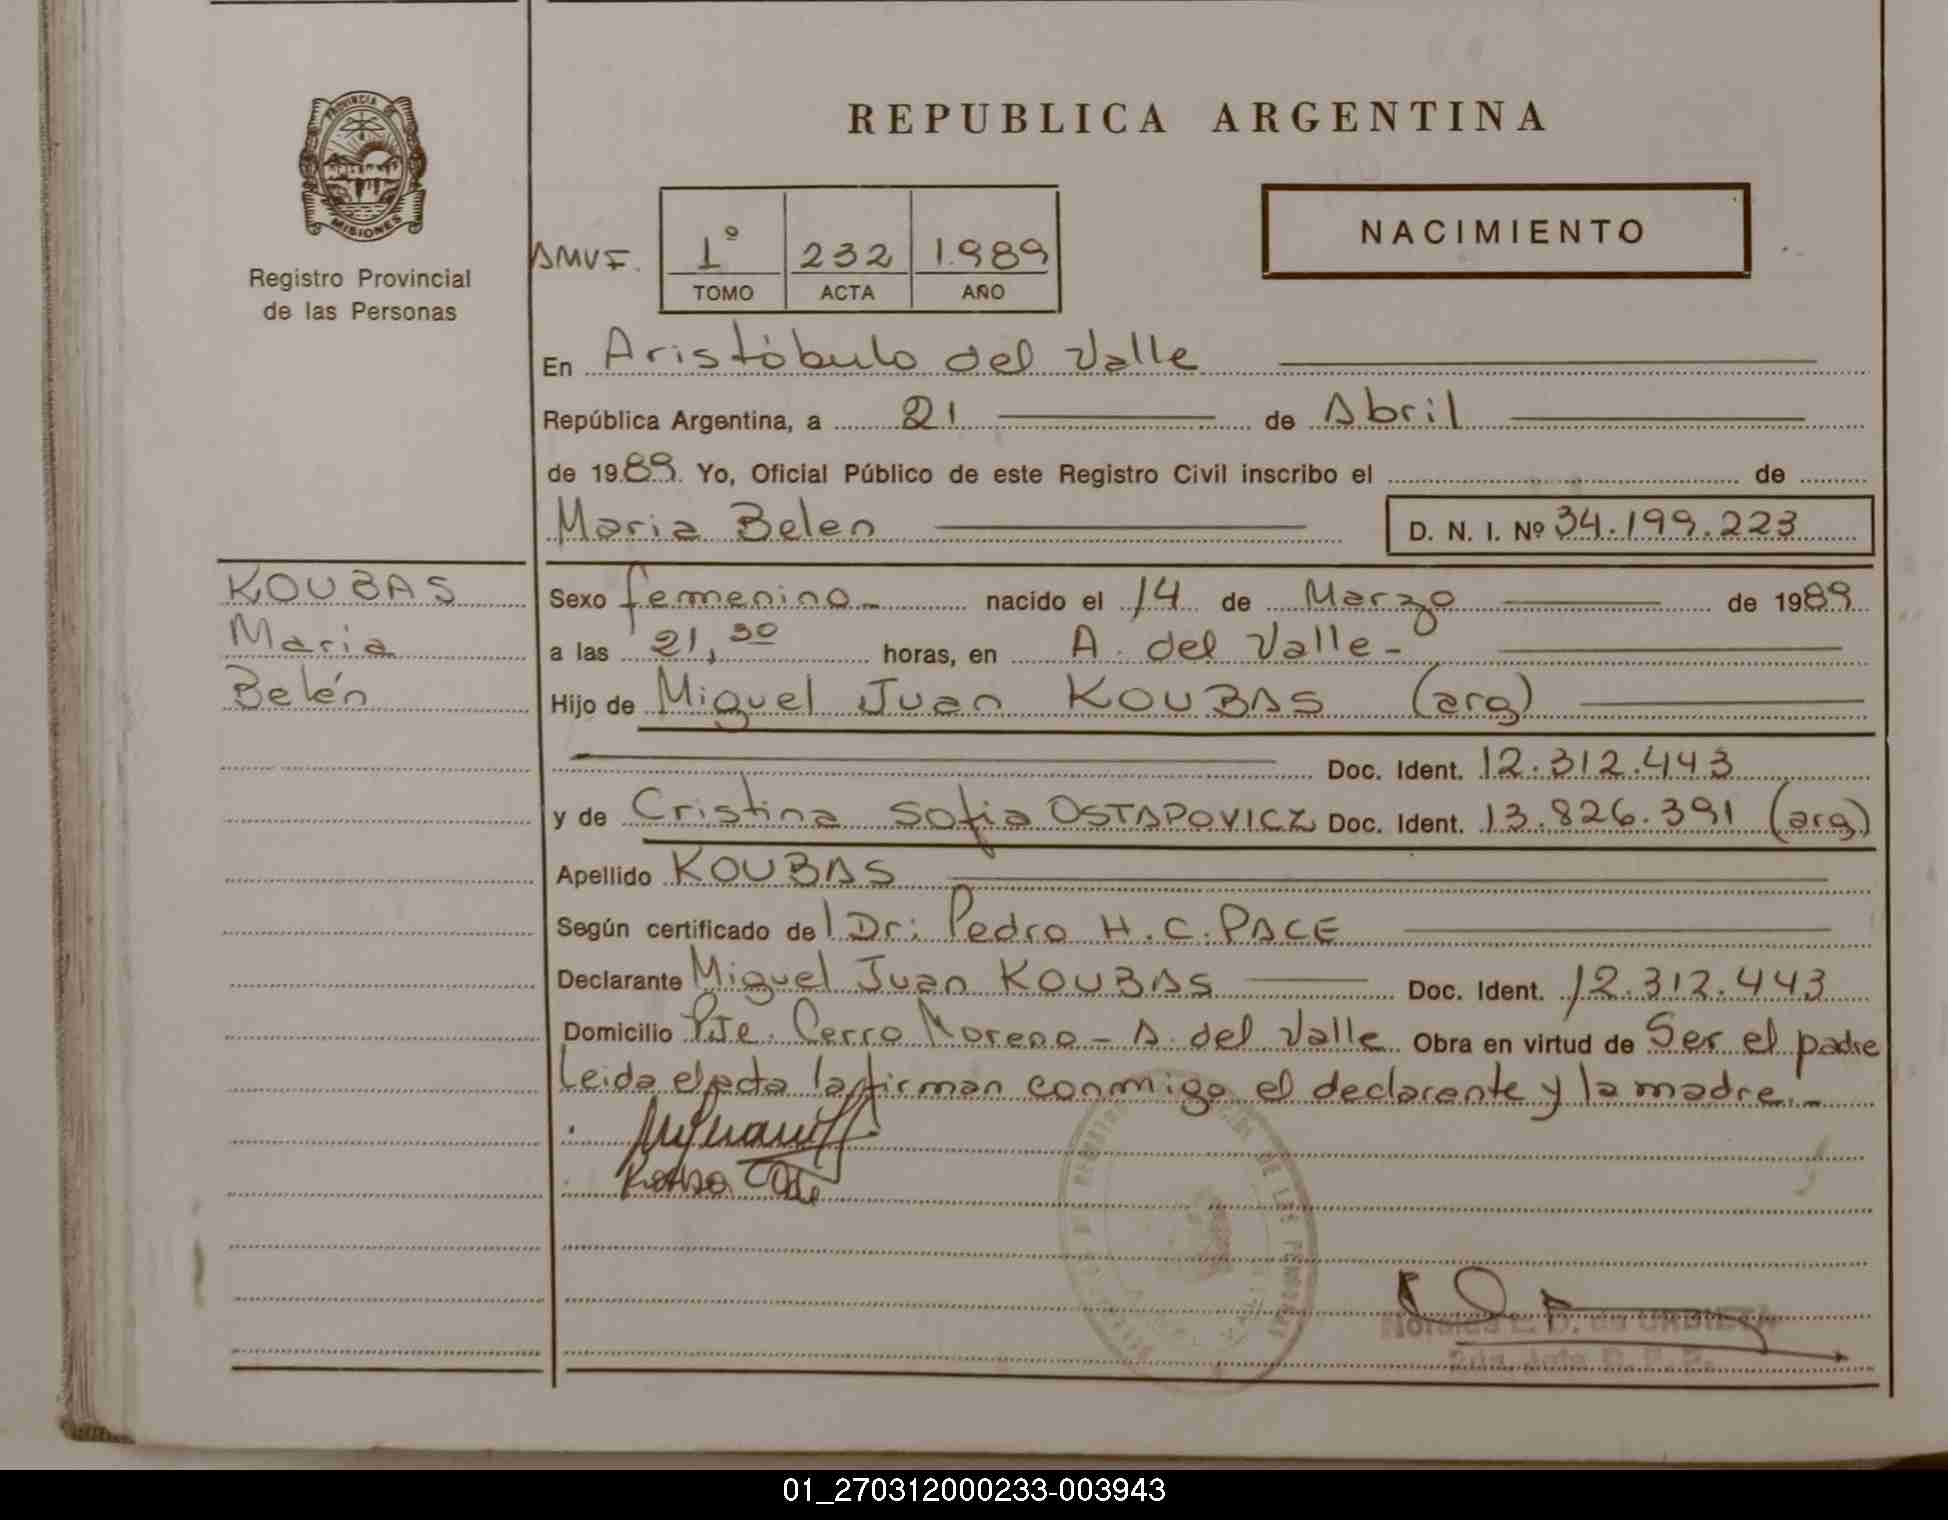 PROVINCIA DE
MISIONES
Registro Provincial
de las Personas
REPUBLICA ARGENTINA
NACIMIENTO
1º 232 1.989
TOMO ACTA AÑO
En Aristóbulo del Valle
República Argentina, a 21 de Abril
de 1989. Yo, Oficial Público de este Registro Civil inscribo el de
Maria Belen D. N. I. Nº 34.199.223
KOUBAS
Maria
Belén
Sexo femenino nacido el 14 de Marzo de 1989
a las 21,30 horas, en A. del Valle-
Hijo de Miguel Juan KOUBAS (arg)
Doc. Ident. 12.312.443
y de Cristina Sofia OSTAPOVICZ Doc. Ident. 13.826.391 (arg)
Apellido KOUBAS
Según certificado del Dr: Pedro H. C. PACE
Declarante Miguel Juan KOUBAS Doc. Ident. 12.312.443
Domicilio Pje. Cerro Moreno - A. del Valle Obra en virtud de Ser el padre
Leida el acta la firman conmigo el declarante y la madre.-
DE LAS PERSONAS
01_270312000233-003943